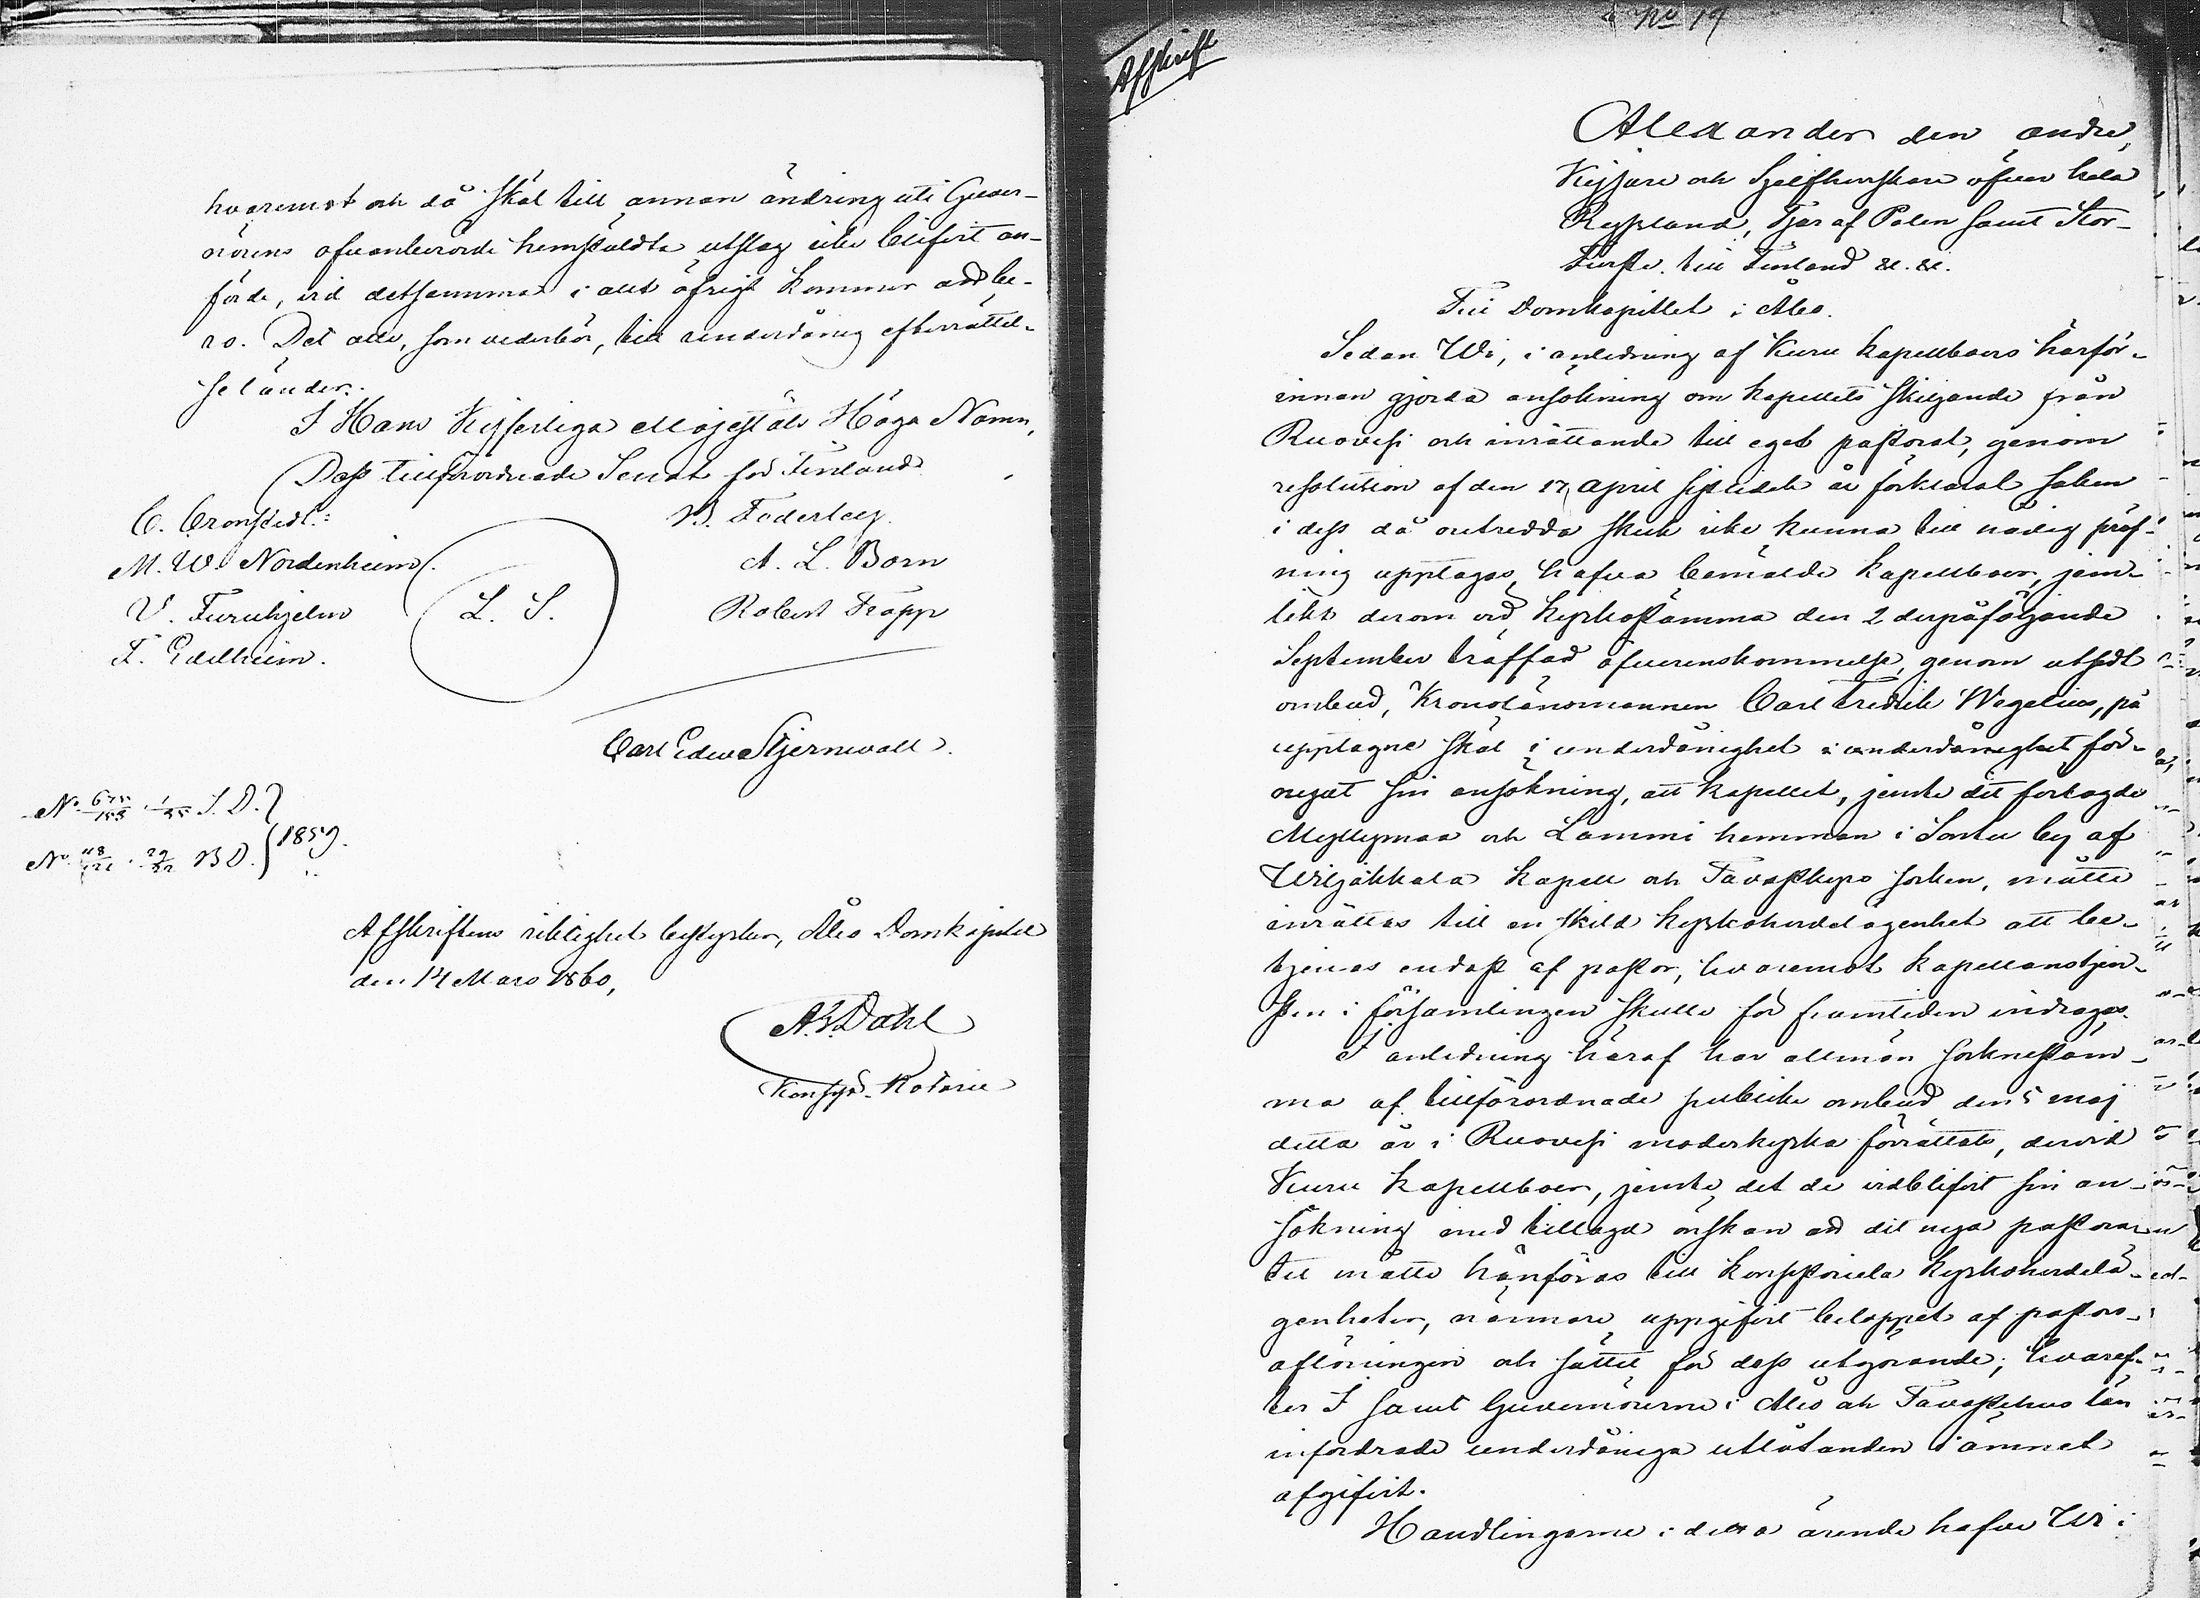 hvaremot och då skäl till annan ändring uti Guver-
nörens ofvanberörde hemställda utslag icke blifvit an-
förde, vid detsamma i allt öfrigt kommer att be-
ro. Det alle, som vederbör, till underdånig efterrättel-
se länder.
I Hans Kejserliga Majestäts Höga Namn,
Dess tillförordnade Senat för Finland
C. Cronstedt. B. Federley.
M. W. Nordenheim. A. L. Born
V. Furuhjelm L. S. Robert Trapp
F. Edelheim.
Carl Edw Stjernvall.
No S. D.
No B D. 1859.
Afskriftens riktighet bestyrker, Åbo Domkapitel
den 14 Mars 1860,
Dahl
Notarie
No 19
Afskrift
Alexander den andre,
Kejsare och Sjelfherrskare öfver hela
Ryssland, Tsar af Polen samt Stor-
Furste till Finland &c. &c.
Till Domkapitlet i Åbo.
Sedan Wi, i anledning af Kuru kapellboers härför-
innan gjorda ansökning om kapellets skiljande från
Ruovesi och inrättande till eget pastorat, genom
resolution af den 17 April sistlidet år förklarat saken
i dess då outredda skick icke kunna till nådig pröf-
ning upptagas, hafva bemälde kapellboer, jem-
likt derom vid kyrkostämma den 2 derpåföljande
September träffad öfverenskommelse, genom utsedt
ombud, Kronolänsmannen Carl Fredrik Wegelius, på
upptagne skäl i underdånighet i underdånighet för-
nyat sin ansökning, att kapellet, jemte dit förlagde
Myllymaa och Lammi hemman i Sontu by af
Wiljakkala kapell och Tavastkyro socken, måtte
inrättas till en skild kyrkoherdelägenhet att be-
tjenas endast af pastor, hvaremot kapellanstjen-
sten i församlingen skulle för framtiden indragas.
I anledning häraf har allmän sockenstäm-
ma af tillförordnade publike ombud den 5 maj
detta år i Ruovesi moderkyrka förrättats, dervid
Kuru kapellboer, jemte det de vidblifvit sin an-
sökning med tillagd önskan att det nya pastora-
tet måtte hänföras till konsistoriela kyrkoherdelä-
genheter, närmare uppgifvit beloppet af pastors-
aflöningen och sättet för dess utgörande; hvaref-
ter I samt Guvernörerne i Åbo och Tavastehus län
infordrade underdåniga utlåtanden i ämnet
afgifvit.
Handlingarne i detta ärende hafve Wi i